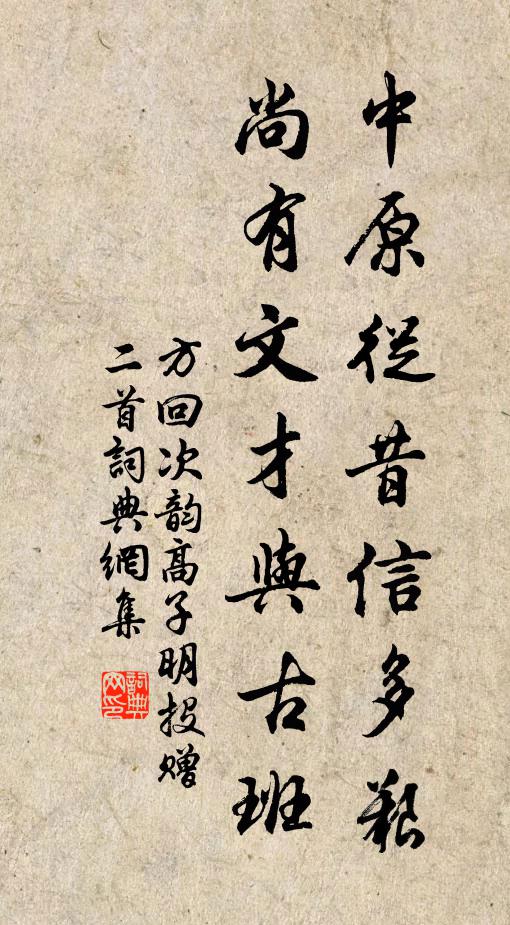 中原從昔信多艱
尚有文才與古班
方回次韵高子明投赠
二首詞典網集
詞典網印